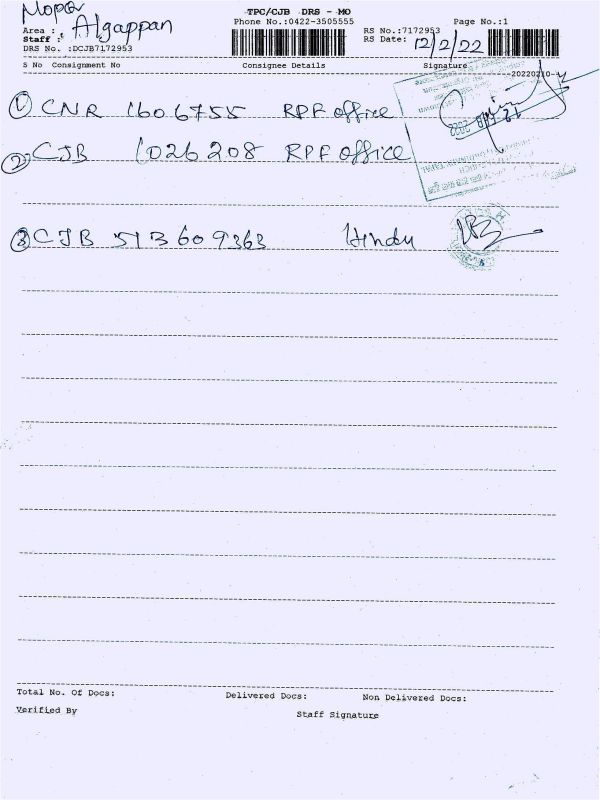 TPC/CJB DRS - MO
Phone No.:0422-3505555 Page No.:1
Area :
Staff : Algappan RS No.:7172953
DRS No. :DCJB7172953 RS Date: 12/2/22
S No Consignment No Consignee Details Signature
1 CNR 1606755 RPF office
2 CJB 1026208 RPF office
3 CJB 513609363 Hindu
Total No. Of Docs: Delivered Docs: Non Delivered Docs:
Verified By Staff Signature